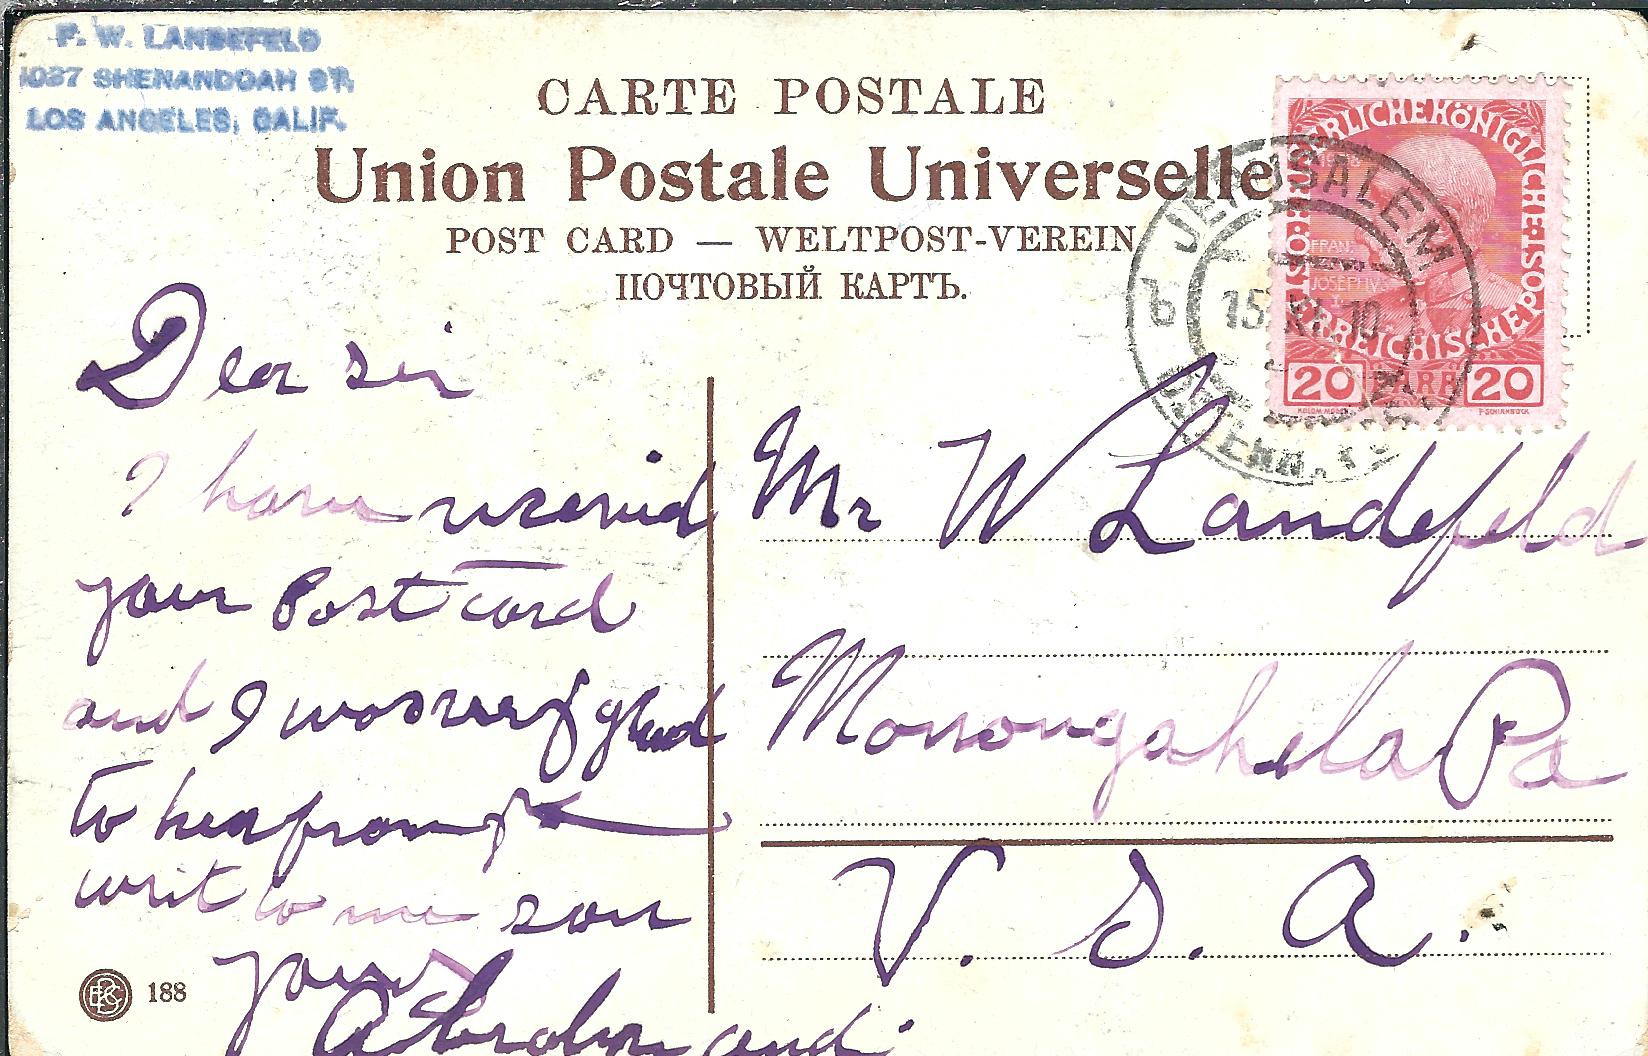 F. W. LANDEFELD
1037 SHENANDOAH ST.
LOS ANGELES, CALIF.
CARTE POSTALE
Union Postale Universelle
POST CARD — WELTPOST-VEREIN
ПОЧТОВЫЙ КАРТЪ.
JERUSALEM
b
15 XI 10
KAISERLICHEKÖNIGLICHE ÖSTERREICHISCHE POST
1908
FRANZ
JOSEPH
I
20 PARA 20
KOLOM.MOSER
F.SCHIRNBÖCK
Dear sir
I have received
your Post card
and I was very glad
to hear from y
writ to me soon
yours
Mr W Landefeld
Monongahela Pa
U. S. A.
188